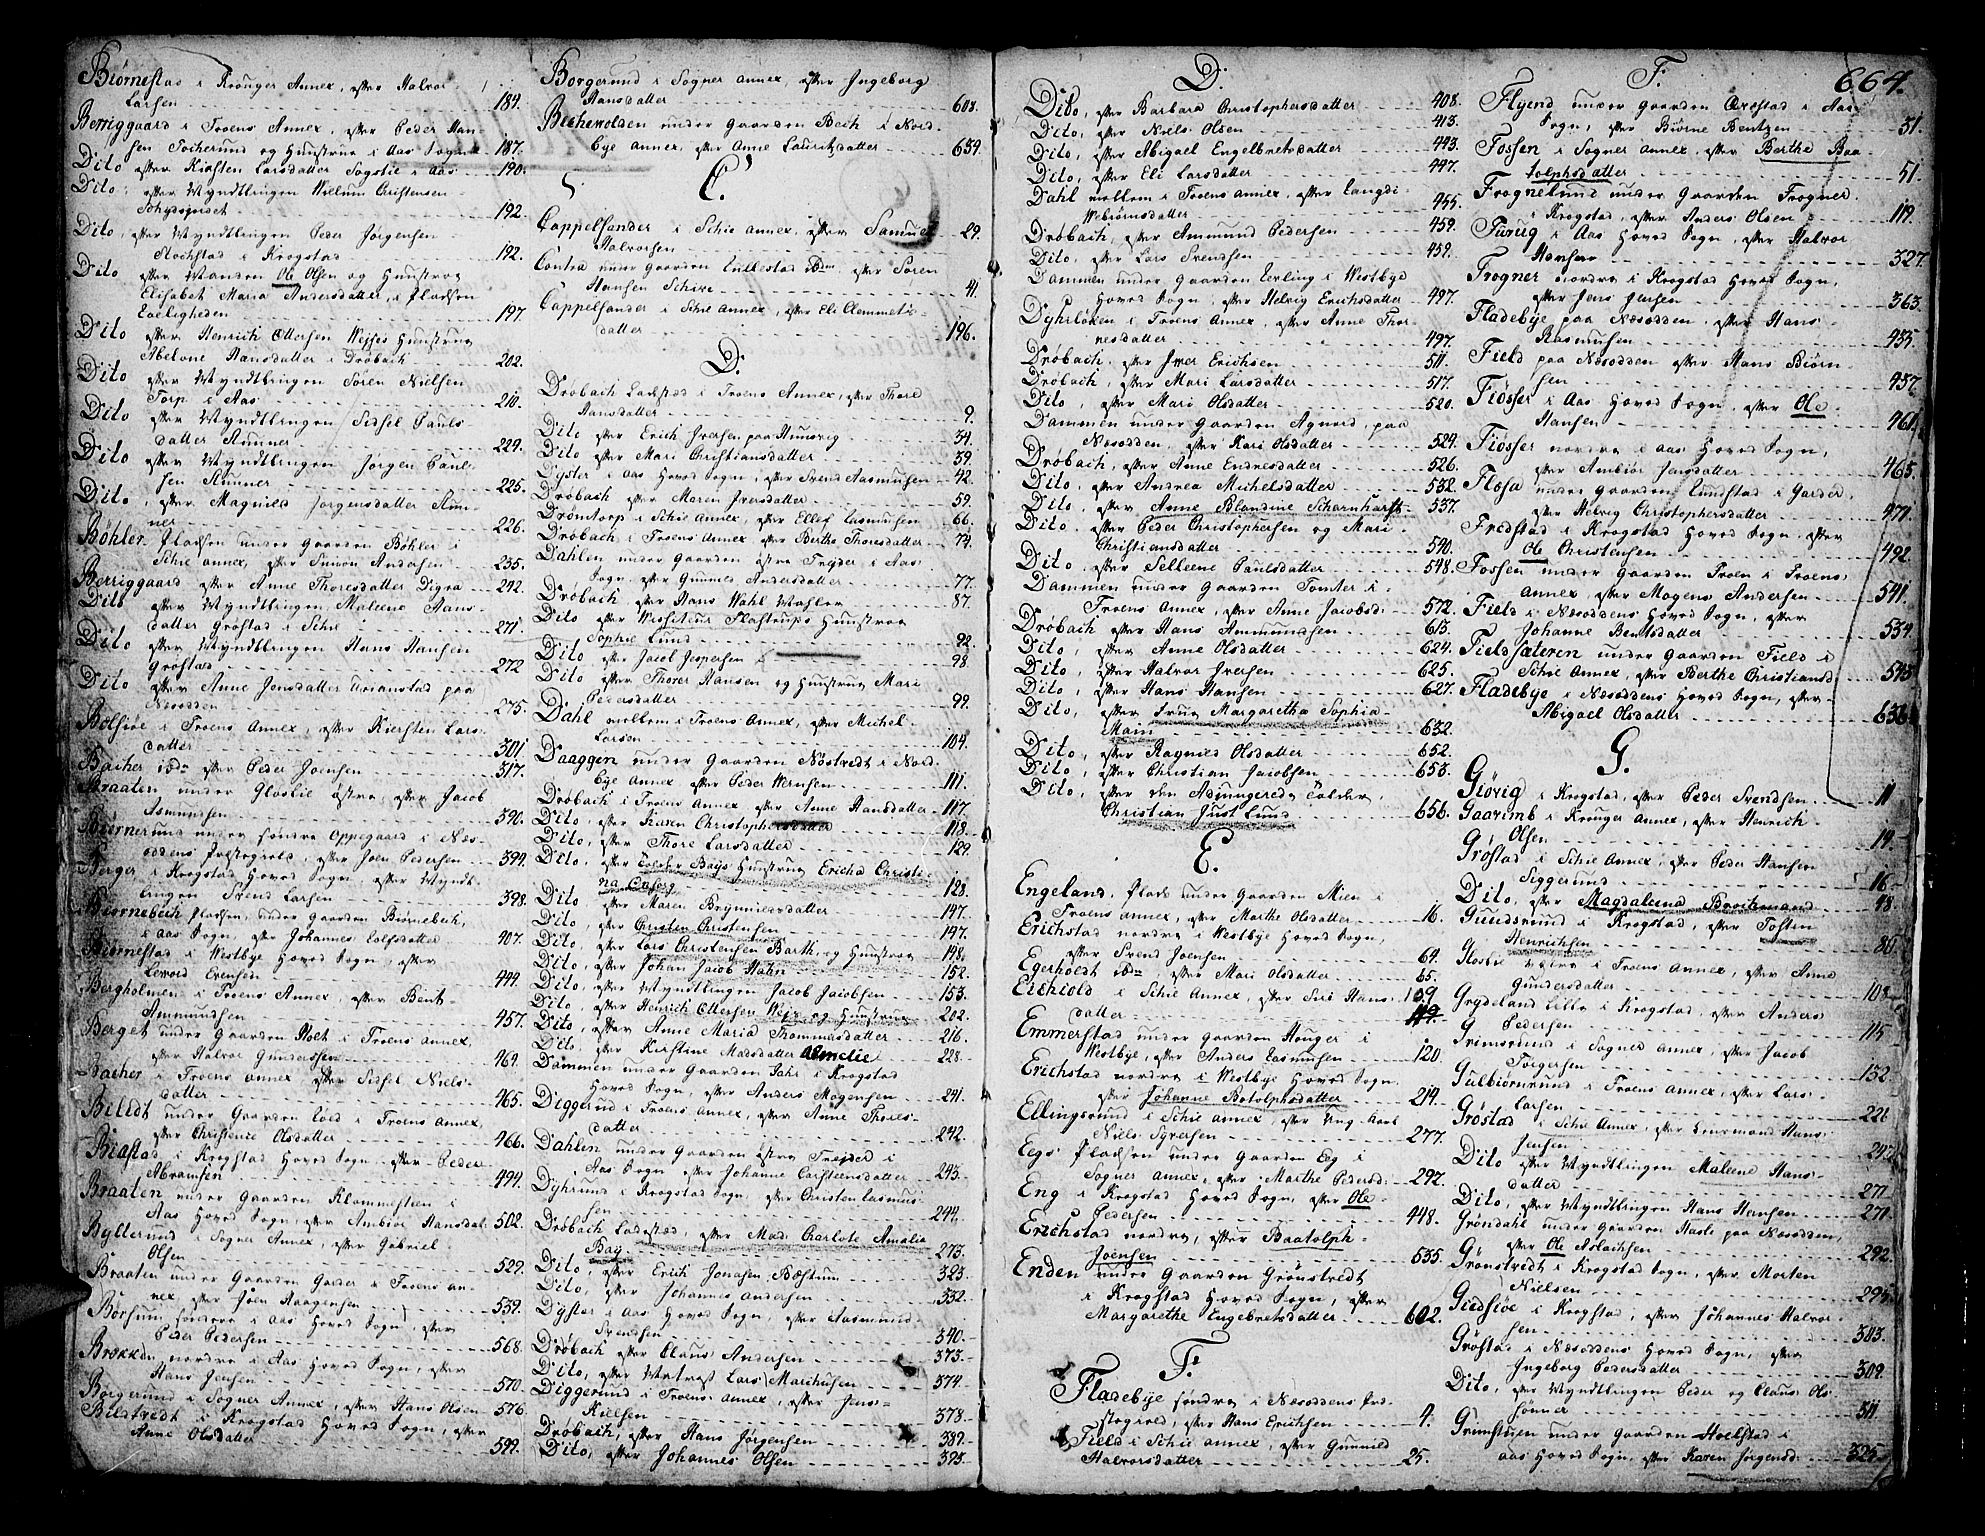 Biørnestad i Krouger Annex, efter Halvor
Larsen 184.
Berriggaard i Froens Annex, efter Peder Han-
sen Sotherund og Hunstrue i Aas Sogn 187.
Dito efter Kirsten Larsdatter Sogstie i Aas 190.
Dito, efter Myndtlingen Willum Cristensen
192.
Dito, efter Myndtlingen Peder Jørgensen
i Krogstad 192.
Dito efter Manden Ole Olsen og Hunstroe
Elisabet Maria Andersdatter, i Pladsen
Eeligheden 197.
Dito efter Henrich Ottersen Wejses Hunstrue
Abelone Hansdatter i Drøbach 202.
Dito efter Myndtlingen Søren Nielsen
Torp i Aas 210.
Dito efter Myndtlingen Sidsel Pauls-
datter Hunner 229.
Dito efter Myndtlingen Jørgen Paul-
sen Hunner 225.
Dito, efter Magnild Jørgensdatter Hun-
ner 226.
Bøhler Pladsen under Gaarden Bøhler i
Schie annex, efter Simon Andersen 235.
Berriggaard efter Anne Thoresdatter Digra 242.
Dito efter Myndtlingen Malene Hans-
datter Grøstad i Schie 271.
Dito efter Myndtlingen Hans Hansen
Grøstad 272.
Dito efter Anne Jonsdatter paa
Næsodden 275.
Bølsiøe i Froens Annex, efter Kiersten Lars-
datter 301.
Bacher ibdm efter Peder Joensen 317.
Braaten under Glosbie østre, efter Jacob
Asmundsen 390.
Biørnerud under søndre Oppegaard i Næs-
oddens Præstegield, efter Joen Pedersen 394.
Berger i Krogstad Hoved Sogn, efter Myndt-
lingen Svend Larsen 398.
Biørnebech Pladsen, under Gaarden Biørnebech,
i Aas Sogn, efter Johannes Lolfsdatter 407.
Biørnestad i Westbye Hoved Sogn, efter
Leword Evensen 444.
Bergholmen i Froens Annex, efter Bent
Ammundsen 457.
Berget under Gaarden Noet i Froens annex,
efter Halvor Gundersen 464.
Bacher i Froens annex efter Sidsel Niels-
datter 465.
Billedt under Gaarden Loed i Froens Annex,
efter Christence Olsdatter 466.
Biastad i Krogstad Hoved Sogn efter Peder
Abramsen 494.
Braaten under Gaarden Klommesteen i
Aas Hoved Sogn, efter Ambiør Hansdat. 502.
Byllerund i Sogner Annex, efter Gabriel
Olsen 529.
Braaten under Gaarden Garder i Froens an-
nex, efter Joen Haagensen 539.
Børsum søndre i Aas Hoved Sogn, efter
Peder Pedersen 568.
Brækken nordre i Aas Hoved Sogn, efter
Hans Jensen 570.
Borgerund i Sogner Annex, efter Hans Olsen 576.
Bildstredt i Krogstad Hoved Sogn, efter
Anne Olsdatter 599.
Borgerund i Sogner annex, efter Ingeborg
Hansdatter 608.
Bechevolden under Gaarden Bech i Nord-
bye annex, efter Anne Lauritsdatter 639.
C.
Cappelsander i Schie annex, efter Samuel
Halvorsen 29.
Contra under Gaarden Lillestad ibdm efter Søren
Hansen Schive 41.
Cappelsander i Schie annex, efter Eli Clemmets-
datter 196.
D.
Drøbach Ladested i Froens Annex, efter Thore
Hansdatter 9.
Dito efter Erich Iversen paa Hunsvig 34.
Dito efter Mari Christiansdatter 39.
Dyster i Aas Hoved Sogn, efter Svend Aasmunsen 42.
Drøbach efter Maren Iversdatter 59.
Drømtorp i Schie Annex, efter Ellef Rasmusen 66.
Drøbach i Froens Annex efter Berthe Thoresdatter 74.
Dahlen under Gaarden østre Frejder i Aas
Sogn, efter Gunild Andersdatter 77.
Drøbach efter Hans Wahl Mahler 87.
Dito efter Wissiteur Flostrups Hunstroe
Sophie Lund 92.
Dito efter Jacob Jespersen 98
Dito efter Thorer Hansen og Hunstrue Mari
Pedersdatter 99.
Dahl mellem i Froens Annex, efter Michel
Larsen 104.
Daaggen under Gaarden Nøstvedt i Nord-
bye annex efter Peder Wensen 111.
Drøbach i Froens Annex efter Anne Hansdatter 117.
Dito, efter Karen Christophersdatter 118.
Dito, efter Thore Larsdatter 129.
Dito, efter Tolder Bays Hunstrue Ericha Christi-
na Caberg 128.
Dito efter Maren Brynnildsdatter 147.
Dito, efter Christen Christensen 147.
Dito efter Lars Christensen Barth, og Hunstroe 148.
Dito, efter Johan Jacob Hahn 152.
Dito, efter Myndtlingen Jacob Jacobsen 153.
Dito, efter Henrich Ottersen Wejse og Hunstrue 202.
Dito, efter Anne Maria Thommasdatter 216.
Dito, efter Kirstine Madsdatter Almelie 228.
Dammen under Gaarden Dahl i Krogstad
Hoved Sogn, efter Anders Mogensen 241.
Diggerund i Froens Annex, efter Anne Thores-
datter 242.
Dahlen under Gaarden østre Frejder i
Aas Sogn efter Johanne Carstensdatter 243.
Dyhrund i Krogstad Sogn, efter Christen Rasmus-
sen 244.
Drøbach Ladested, efter Mad: Charlote Amalia
Bay 273.
Dito, efter Erich Jonasen Bæstum 323.
Dito, efter Johannes Andersen 332.
Dyster i Aas Hoved Sogn, efter Aasmund
Svendsen 340.
Drøbach efter Claus Andersen 373.
Dito, efter Matros Lars Marchusen 374.
Diggerund i Froens annex, efter Jens
Nielsen 378.
Drøbach, efter Hans Jørgensen 389.
Dito, efter Johannes Olsen 395.
D.
Dito, efter Barbara Christophersdatter 408.
Dito, efter Niels Olsen 413.
Dito, efter Abigael Engelbretsdatter 443.
Dito, efter Eli Larsdatter 447.
Dahl mellem i Froens annex, efter Langdi
Webiørnsdatter 455.
Drøbach, efter Ammund Pedersen 459.
Dito, efter Lars Svendsen 459.
Dammen under Gaarden Eerling i Westbye
Hoved Sogn, efter Helvig Erichsdatter 497.
Dyhrløken i Froens Annex, efter Anne Thor-
nesdatter 497.
Drøbach, efter Iver Erichsen 511.
Drøbach, efter Mari Larsdatter 517.
Dito, efter Mari Olsdatter 520.
Dammen under Gaarden Agnord paa
Næsodden, efter Kari Olsdatter 524.
Drøbach, efter Anne Endresdatter 526.
Dito, efter Andrea Michelsdatter 532.
Dito, efter Anne Blandine Scharnharst 537.
Dito, efter Peder Christophersen og Mari
Christiansdatter 540.
Dito, efter Sellene Paulsdatter 548.
Dammen under Gaarden Tomter i
Froens Annex, efter Anne Jacobsd: 572.
Drøbach efter Hans Ammundsen 613.
Dito, efter Anne Olsdatter 624.
Dito, efter Halvor Iversen 625.
Dito, efter Hans Hansen 627.
Dito, efter Frue Margaretha Sophia
Main 632.
Dito, efter Ragnild Olsdatter 652.
Dito, efter Christian Jacobsen 653.
Dito, efter den Adjungerede Tolder
Christian Just Lund 656.
E.
Engeland, Plads under Gaarden Mien i
Froens annex, efter Marthe Olsdatter 16.
Erichstad nordre i Westbye Hoved Sogn,
efter Svend Joensen 64.
Egerholdt ibdm, efter Mari Olsdatter 65.
Eichiold i Schie Annex, efter Siri Hans-
datter 109
Emmerstad under Gaarden Houger i
Westbye, efter Anders Rasmusen 120.
Erichstad nordre i Westbye Hoved Sogn
efter Johanne Botolphsdatter 214.
Ellingsrund i Schie annex, efter Ung. Karl
Niels Syversen 277.
Eegs Pladsen under Gaarden Eeg i
Sogner Annex, efter Marthe Pedersd: 292.
Eng i Krogstad Hoved Sogn, efter Ole
Pedersen 448.
Erichstad nordre, efter Baatolph
Joensen 535.
Enden under Gaarden Grønstredt
i Krogstad Hoved Sogn, efter
Margarethe Engebretsdatter 602.
F.
Fladebye søndre i Næsoddens Præ-
stegield, efter Hans Erichsen 4.
Field i Schie annex, efter Gunnild
Halvorsdatter 25.
F. 664.
Flyend under Gaarden Oxestad i Aas
Sogn, efter Biørne Bentzen 31.
Fossen i Sogner Annex, efter Berthe Baa-
tolphsdatter 51.
Frognelund under Gaarden Frogner
i Krogstad, efter Anders Olsen 119.
Furug i Aas Hoved Sogn, efter Halvor
Hansen 327.
Frogner nordre i Krogstad Hoved Sogn,
efter Jens Jensen 363.
Fladebye paa Næsodden, efter Hans
Rasmusen 435.
Field paa Næsodden efter Hans Biørn-
sen 457.
Fiøsser i Aas Hoved Sogn, efter Ole
Hansen 461.
Fiøsser nordre i Aas Hoved Sogn,
efter Ambiør Jensdatter 465.
Flosa under Gaarden Lundstad i Garder,
efter Helvig Christophersdatter 471.
Fredstad i Krogstad Hoved Sogn, efter
Ole Christensen 492.
Fossen under Gaarden Froen i Froens
annex, efter Mogens Andersen 541.
Field i Næsoddens Hoved Sogn, efter
Johanne Bentsdatter 554.
Fieldsæteren under Gaarden Field i
Schie Annex, efter Berthe Christiansd:
Fladebye i Næsoddens Hoved Sogn, efter
Abigael Olsdatter 636.
G.
Giøvig i Krogstad, efter Peder Svendsen 11
Gaaremb i Krouger Annex, efter Henrich
Olsen 14.
Grøstad i Schie Annex, efter Peder Hansen
Siggerund 16.
Dito, efter Magdalena Brochmand 48.
Gundsrund i Krogstad, efter Tosten
Henrichsen 86.
Glosbie østre i Froens Annex, efter Anne
Gundersdatter 108.
Grydeland Lille i Krogstad, efter Anders
Pedersen 115.
Grimsrund i Sogner Annex, efter Jacob
Torgersen 132.
Gulbiørnrund i Froens Annex, efter Lars
Larsen 221.
Grøstad i Schie Annex, efter Hans
Jensen 247.
Dito efter Myndtlingen Malene Hans-
datter 271.
Dito, efter Myndtlingen Hans Hansen 271.
Grøndahl under Gaarden Hasle paa Næsodden,
efter Ole Aslachsen 292.
Grønstredt i Krogstad Sogn, efter Morten
Nielsen 295.
Giedsiøe i Krogstad, efter Johannes Halvor-
sen 303.
Grøstad i Næsoddens Hoved Sogn, efter
Ingeborg Pedersdatter 309.
Dito, efter Myndtlingen Peder og Claus Ols-
sønner 311.
Grimstuen under Gaarden Hoelstad i
Aas Hoved Sogn, efter Karen Jørgensd: 325.